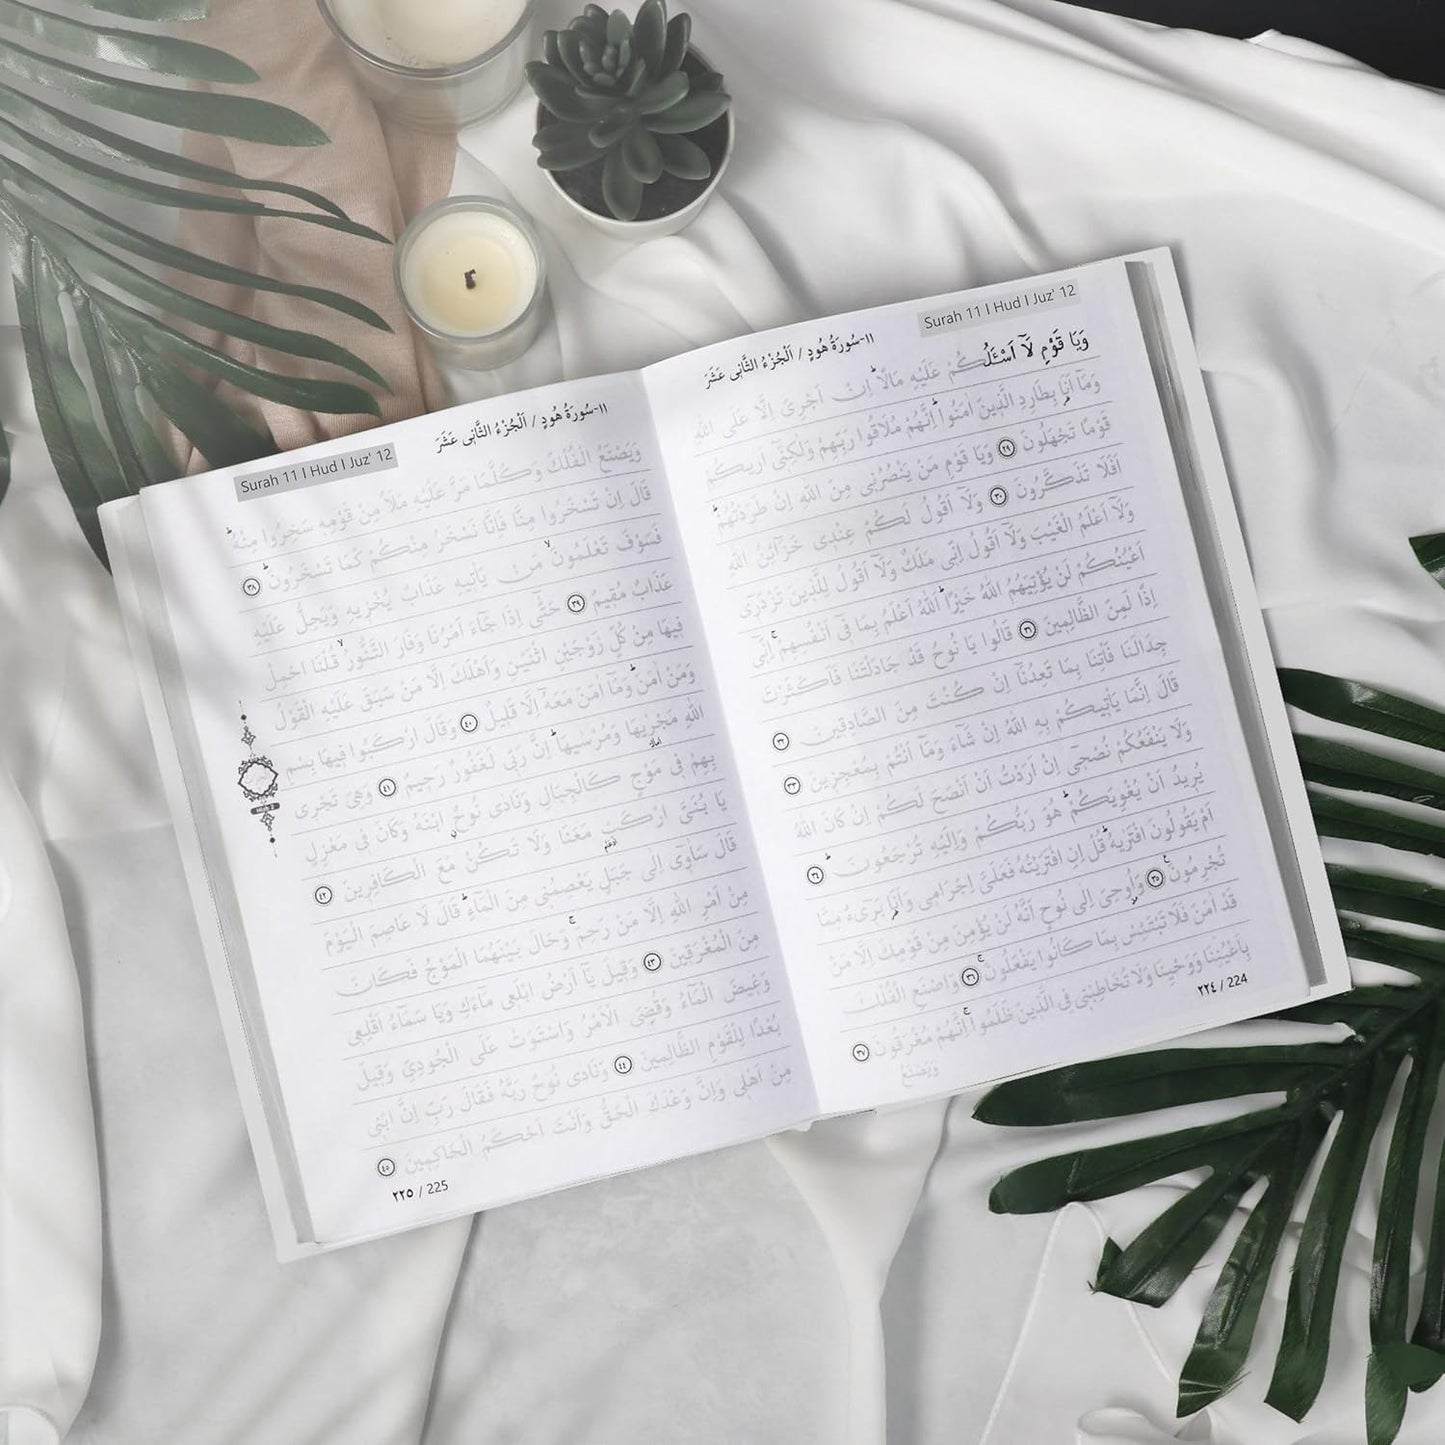 Surah 11 I Hud I Juz' 12
١١-سُورَةُ هُودٍ / اَلْجُزْءُ الثَّانِى عَشَرَ
وَيَا قَوْمِ لَٓا اَسْـَٔلُكُمْ عَلَيْهِ مَالًاۜ اِنْ اَجْرِىَ اِلَّا عَلَى اللّٰهِ
وَمَٓا اَنَا۬ بِطَارِدِ الَّذٖينَ اٰمَنُواۜ اِنَّهُمْ مُلَاقُوا رَبِّهِمْ وَلٰكِنّٖٓى اَرٰيكُمْ
قَوْمًا تَجْهَلُونَ ﴿٢٩﴾ وَيَا قَوْمِ مَنْ يَنْصُرُنٖى مِنَ اللّٰهِ اِنْ طَرَدْتُهُمْۜ
اَفَلَا تَذَكَّرُونَ ﴿٣٠﴾ وَلَٓا اَقُولُ لَكُمْ عِنْدٖى خَزَٓائِنُ اللّٰهِ
وَلَٓا اَعْلَمُ الْغَيْبَ وَلَٓا اَقُولُ اِنّٖى مَلَكٌ وَلَٓا اَقُولُ لِلَّذٖينَ تَزْدَرٖٓى
اَعْيُنُكُمْ لَنْ يُؤْتِيَهُمُ اللّٰهُ خَيْرًاۜ اَللّٰهُ اَعْلَمُ بِمَا فٖٓى اَنْفُسِهِمْۚ اِنّٖٓى
اِذًا لَمِنَ الظَّالِمٖينَ ﴿٣١﴾ قَالُوا يَا نُوحُ قَدْ جَادَلْتَنَا فَاَكْثَرْتَ
جِدَالَنَا فَأْتِنَا بِمَا تَعِدُنَٓا اِنْ كُنْتَ مِنَ الصَّادِقٖينَ ﴿٣٢﴾
قَالَ اِنَّمَا يَأْتٖيكُمْ بِهِ اللّٰهُ اِنْ شَٓاءَ وَمَٓا اَنْتُمْ بِمُعْجِزٖينَ ﴿٣٣﴾
وَلَا يَنْفَعُكُمْ نُصْحٖٓى اِنْ اَرَدْتُ اَنْ اَنْصَحَ لَكُمْ اِنْ كَانَ اللّٰهُ
يُرٖيدُ اَنْ يُغْوِيَكُمْۜ هُوَ رَبُّكُمْ وَاِلَيْهِ تُرْجَعُونَۜ ﴿٣٤﴾
اَمْ يَقُولُونَ افْتَرٰيهُۜ قُلْ اِنِ افْتَرَيْتُهُ فَعَلَىَّ اِجْرَامٖى وَاَنَا۬ بَرٖٓىءٌ مِمَّا
تُجْرِمُونَۚ ﴿٣٥﴾ وَاُو۫حِىَ اِلٰى نُوحٍ اَنَّهُ لَنْ يُؤْمِنَ مِنْ قَوْمِكَ اِلَّا مَنْ
قَدْ اٰمَنَ فَلَا تَبْتَئِسْ بِمَا كَانُوا يَفْعَلُونَۚ ﴿٣٦﴾ وَاصْنَعِ الْفُلْكَ
بِاَعْيُنِنَا وَوَحْيِنَا وَلَا تُخَاطِبْنٖى فِى الَّذٖينَ ظَلَمُواۚ اِنَّهُمْ مُغْرَقُونَ ﴿٣٧﴾
وَيَصْنَعُ
٢٢٤ / 224
Surah 11 I Hud I Juz' 12
١١-سُورَةُ هُودٍ / اَلْجُزْءُ الثَّانِى عَشَرَ
وَيَصْنَعُ الْفُلْكَ وَكُلَّمَا مَرَّ عَلَيْهِ مَلَاٌ مِنْ قَوْمِهٖ سَخِرُوا مِنْهُۜ
قَالَ اِنْ تَسْخَرُوا مِنَّا فَاِنَّا نَسْخَرُ مِنْكُمْ كَمَا تَسْخَرُونَۜ ﴿٣٨﴾
فَسَوْفَ تَعْلَمُونَۙ مَنْ يَأْتٖيهِ عَذَابٌ يُخْزٖيهِ وَيَحِلُّ عَلَيْهِ
عَذَابٌ مُقٖيمٌ ﴿٣٩﴾ حَتّٰٓى اِذَا جَٓاءَ اَمْرُنَا وَفَارَ التَّنُّورُۙ قُلْنَا احْمِلْ
فٖيهَا مِنْ كُلٍّ زَوْجَيْنِ اثْنَيْنِ وَاَهْلَكَ اِلَّا مَنْ سَبَقَ عَلَيْهِ الْقَوْلُ
وَمَنْ اٰمَنَۜ وَمَٓا اٰمَنَ مَعَهُٓ اِلَّا قَلٖيلٌ ﴿٤٠﴾ وَقَالَ ارْكَبُوا فٖيهَا بِسْمِ
اللّٰهِ مَجْرٰۭۙيهَا وَمُرْسٰيهَاۜ اِنَّ رَبّٖى لَغَفُورٌ رَحٖيمٌ ﴿٤١﴾ وَهِىَ تَجْرٖى
بِهِمْ فٖى مَوْجٍ كَالْجِبَالِ وَنَادٰى نُوحٌ ابْنَهُ وَكَانَ فٖى مَعْزِلٍ
يَا بُنَىَّ ارْكَبْ مَعَنَا وَلَا تَكُنْ مَعَ الْكَافِرٖينَ ﴿٤٢﴾
قَالَ سَاٰوٖٓى اِلٰى جَبَلٍ يَعْصِمُنٖى مِنَ الْمَٓاءِۜ قَالَ لَا عَاصِمَ الْيَوْمَ
مِنْ اَمْرِ اللّٰهِ اِلَّا مَنْ رَحِمَۚ وَحَالَ بَيْنَهُمَا الْمَوْجُ فَكَانَ
مِنَ الْمُغْرَقٖينَ ﴿٤٣﴾ وَقٖيلَ يَٓا اَرْضُ ابْلَعٖى مَٓاءَكِ وَيَا سَمَٓاءُ اَقْلِعٖى
وَغٖيضَ الْمَٓاءُ وَقُضِىَ الْاَمْرُ وَاسْتَوَتْ عَلَى الْجُودِىِّ وَقٖيلَ
بُعْدًا لِلْقَوْمِ الظَّالِمٖينَ ﴿٤٤﴾ وَنَادٰى نُوحٌ رَبَّهُ فَقَالَ رَبِّ اِنَّ ابْنٖى
مِنْ اَهْلٖى وَاِنَّ وَعْدَكَ الْحَقُّ وَاَنْتَ اَحْكَمُ الْحَاكِمٖينَ ﴿٤٥﴾
٢٢٥ / 225